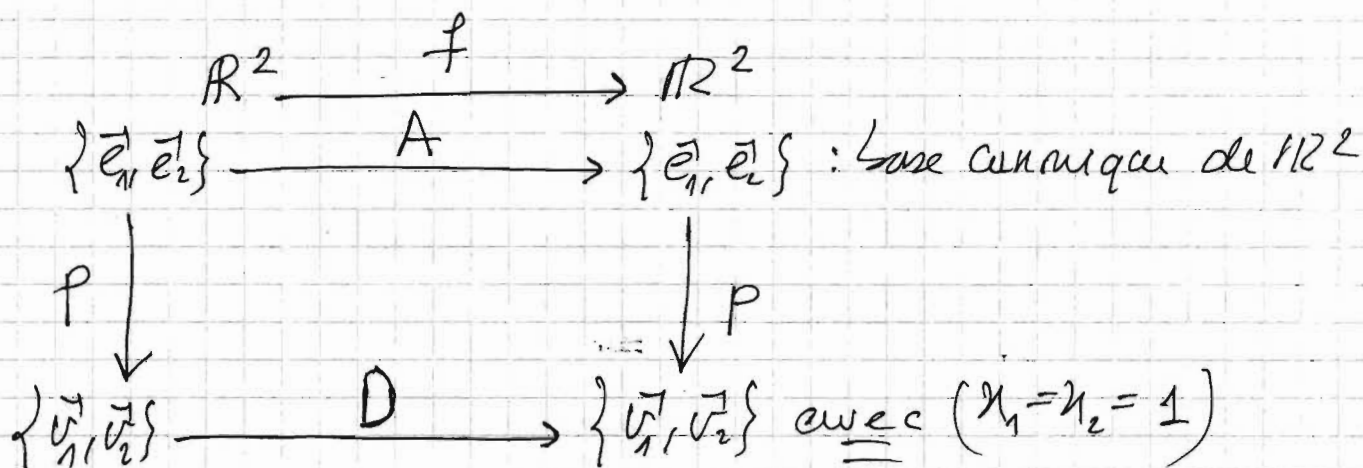 f
ℝ² ⟶ ℝ²
A
{e⃗₁, e⃗₂} ⟶ {e⃗₁, e⃗₂} : base canonique de ℝ²
P P
D
{v⃗₁, v⃗₂} ⟶ {v⃗₁, v⃗₂} avec (x₁=x₂=1)